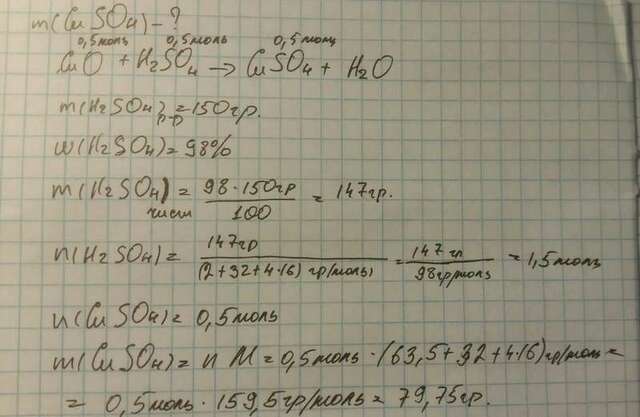 m(CuSO4) - ?
0,5моль 0,5моль 0,5моль
CuO + H2SO4 → CuSO4 + H2O
m(H2SO4) р-р = 150гр.
w(H2SO4) = 98%
m(H2SO4) чист = 98·150гр / 100 = 147гр.
n(H2SO4) = 147гр / (2+32+4·16) гр/моль = 147 гр / 98гр/моль = 1,5моль
n(CuSO4) = 0,5моль
m(CuSO4) = n M = 0,5моль · (63,5+32+4·16)гр/моль =
= 0,5моль · 159,5гр/моль = 79,75гр.